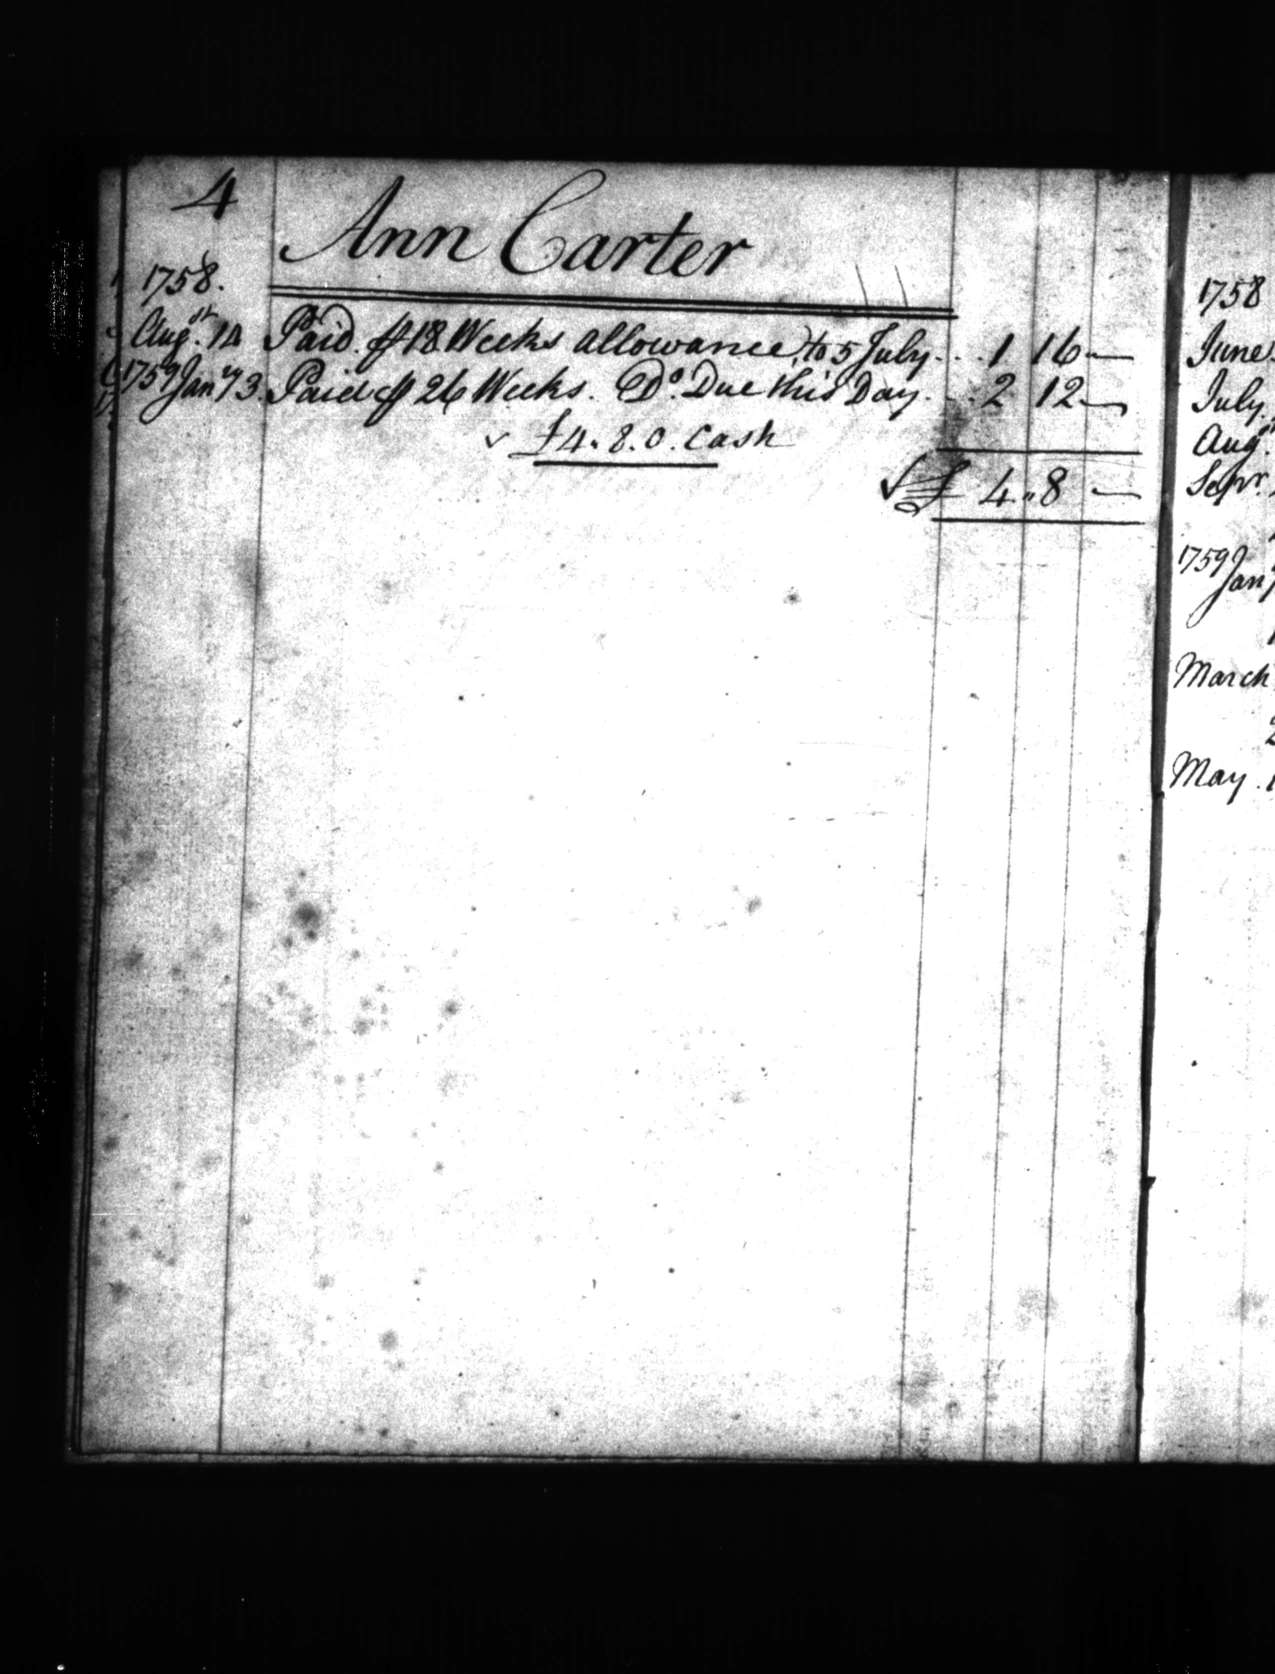 4
Ann Carter
1758.
Augst. 14 Paid ⅌ 18 Weeks allowance, to 5 July. . . 1 16 —
1759 Jany 3. Paid ⅌ 26 Weeks. Do. Due this Day. . . 2 12 —
✓ £4. 8. 0. Cash
✓ £ 4 " 8 —
1758
June
July
Augt.
Sepr.
1759
Jany
March
May